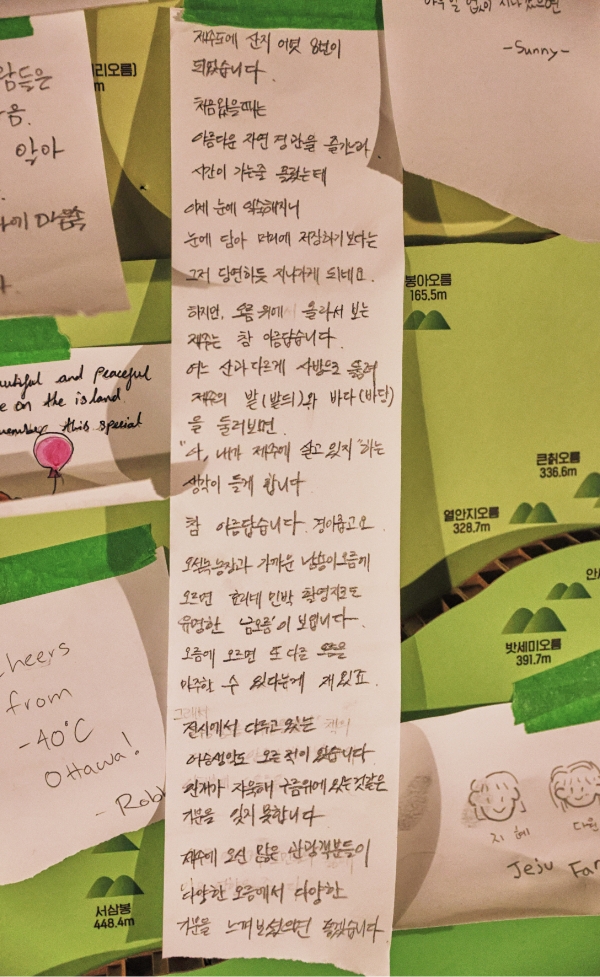 아무 일 없이 지나갔으면
-Sunny-
람들은
음.
앞아
나기 마음속
다.
리오름)
m
제주도에 산지 어텃 8년이
되었습니다.
처음왔을때는
아름다운 자연 경관을 즐기느라
시간이 가는줄 몰랐는데
이제 눈에 익숙해지니
눈에 담아 머리에 저장하기보다는
그저 당연하듯 지나가게 되네요.
하지만, 오름 위에 올라서 보는
제주는 참 아름답습니다.
여느 산과 다르게 사방으로 뚫려
제주의 밭(밭듸)와 바다(바당)
을 둘러보면.
"아, 내가 제주에 살고 있지"하는
생각이 들게 합니다.
참 아름답습니다. 경이롭고요.
오설록농장과 가까운 남송이오름에
오르면 효리네 민박 촬영지로도
유명한 '금오름'이 보입니다.
오름에 오르면 또 다른 오름을
마주할 수 있다는게 재밌죠.
그래서
전시에서 다루고 있는
어승생악도 오른 적이 있습니다.
안개가 자욱해 구름위에 있는것같은
기분을 잊지 못합니다.
제주에 오신 많은 관광객분들이
다양한 오름에서 다양한
기분을 느껴보셨으면 좋겠습니다.
봉아오름
165.5m
utiful and peaceful
e on the island.
remember this special
큰칡오름
336.6m
열안지오름
328.7m
안
밧세미오름
391.7m
Cheers
from
-40°C
Ottawa!
- Rob
서삼봉
448.4m
지혜
다원
Jeju Fa